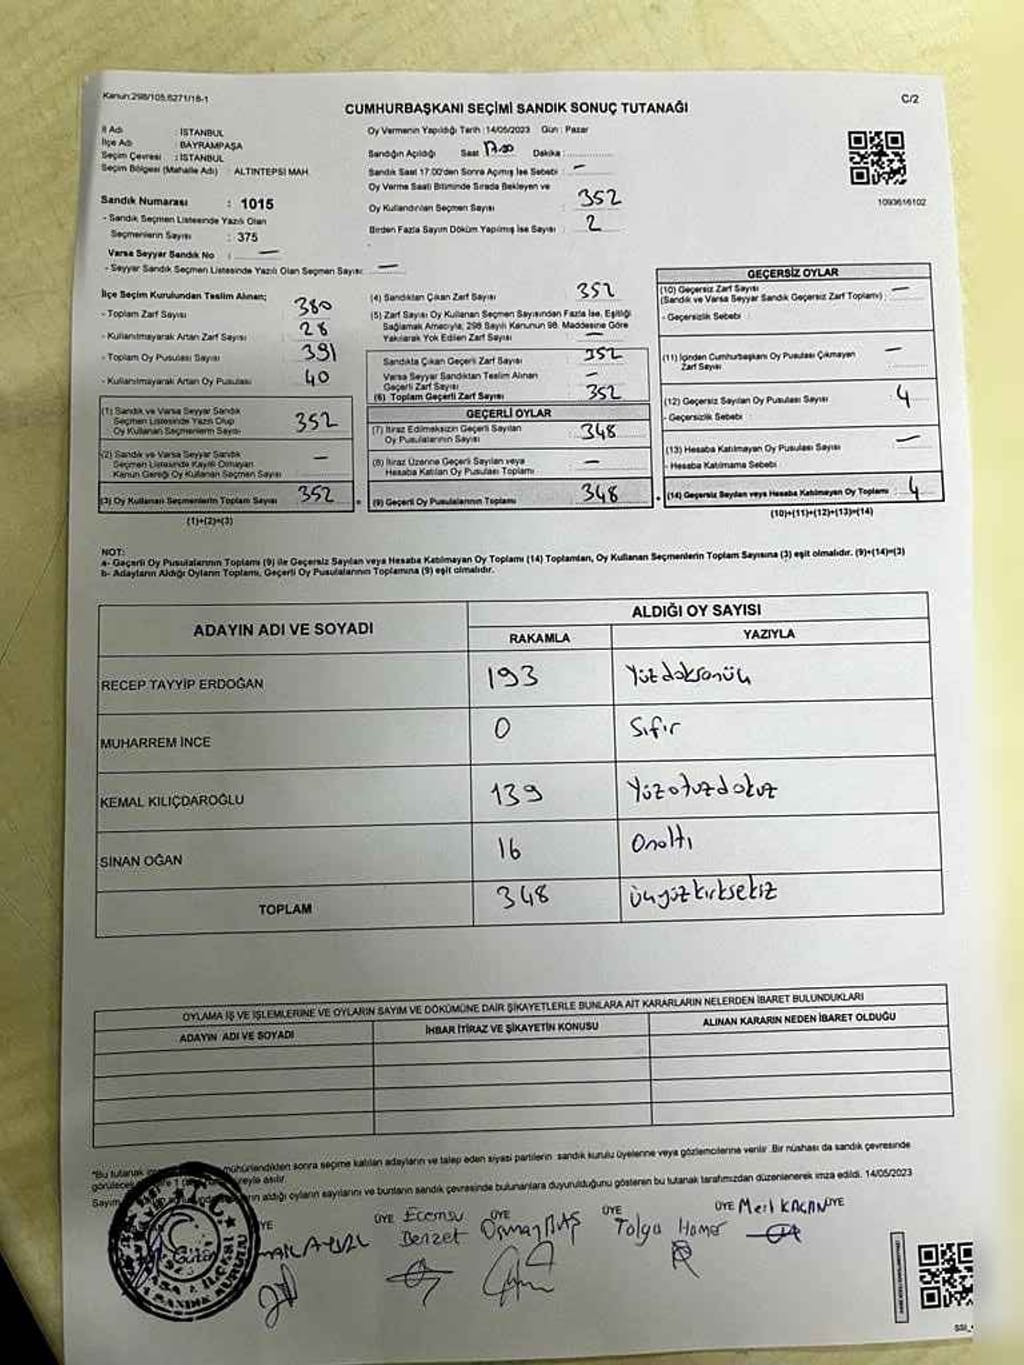 Kanun:298/105,6271/18-1
CUMHURBAŞKANI SEÇİMİ SANDIK SONUÇ TUTANAĞI
C/2
İl Adı : İSTANBUL
İlçe Adı : BAYRAMPAŞA
Seçim Çevresi : İSTANBUL
Seçim Bölgesi (Mahalle Adı) : ALTINTEPSİ MAH.
Sandık Numarası : 1015
- Sandık Seçmen Listesinde Yazılı Olan
Seçmenlerin Sayısı : 375
Varsa Seyyar Sandık No : —
- Seyyar Sandık Seçmen Listesinde Yazılı Olan Seçmen Sayısı: —
Oy Vermenin Yapıldığı Tarih : 14/05/2023 Gün : Pazar
Sandığın Açıldığı Saat 17.00 Dakika :
Sandık Saat 17:00'den Sonra Açmış İse Sebebi : —
Oy Verme Saati Bitiminde Sırada Bekleyen ve
Oy Kullandırılan Seçmen Sayısı : 352
Birden Fazla Sayım Döküm Yapılmış İse Sayısı : 2
1093616102
İlçe Seçim Kurulundan Teslim Alınan;
- Toplam Zarf Sayısı 380
- Kullanılmayarak Artan Zarf Sayısı 28
- Toplam Oy Pusulası Sayısı 391
- Kullanılmayarak Artan Oy Pusulası 40
(1) Sandık ve Varsa Seyyar Sandık
Seçmen Listesinde Yazılı Olup
Oy Kullanan Seçmenlerin Sayısı 352
(2) Sandık ve Varsa Seyyar Sandık
Seçmen Listesinde Kayıtlı Olmayan
Kanun Gereği Oy Kullanan Seçmen Sayısı —
(3) Oy Kullanan Seçmenlerin Toplam Sayısı 352
(1)+(2)=(3)
(4) Sandıktan Çıkan Zarf Sayısı 352
(5) Zarf Sayısı Oy Kullanan Seçmen Sayısından Fazla İse, Eşitliği
Sağlamak Amacıyla, 298 Sayılı Kanunun 98. Maddesine Göre
Yakılarak Yok Edilen Zarf Sayısı —
Sandıkta Çıkan Geçerli Zarf Sayısı 352
Varsa Seyyar Sandıktan Teslim Alınan
Geçerli Zarf Sayısı —
(6) Toplam Geçerli Zarf Sayısı 352
GEÇERLİ OYLAR
(7) İtiraz Edilmeksizin Geçerli Sayılan
Oy Pusulalarının Sayısı 348
(8) İtiraz Üzerine Geçerli Sayılan veya
Hesaba Katılan Oy Pusulası Toplamı —
(9) Geçerli Oy Pusulalarının Toplamı 348
GEÇERSİZ OYLAR
(10) Geçersiz Zarf Sayısı —
(Sandık ve Varsa Seyyar Sandık Geçersiz Zarf Toplamı) :
- Geçersizlik Sebebi :
(11) İçinden Cumhurbaşkanı Oy Pusulası Çıkmayan
Zarf Sayısı —
(12) Geçersiz Sayılan Oy Pusulası Sayısı 4
- Geçersizlik Sebebi :
(13) Hesaba Katılmayan Oy Pusulası Sayısı —
- Hesaba Katılmama Sebebi :
(14) Geçersiz Sayılan veya Hesaba Katılmayan Oy Toplamı 4
(10)+(11)+(12)+(13)=(14)
NOT:
a- Geçerli Oy Pusulalarının Toplamı (9) ile Geçersiz Sayılan veya Hesaba Katılmayan Oy Toplamı (14) Toplamları, Oy Kullanan Seçmenlerin Toplam Sayısına (3) eşit olmalıdır. (9)+(14)=(3)
b- Adayların Aldığı Oyların Toplamı, Geçerli Oy Pusulalarının Toplamına (9) eşit olmalıdır.
ADAYIN ADI VE SOYADI
ALDIĞI OY SAYISI
RAKAMLA YAZIYLA
RECEP TAYYİP ERDOĞAN 193 Yüzdoksanüç
MUHARREM İNCE 0 Sıfır
KEMAL KILIÇDAROĞLU 139 Yüzotuzdokuz
SİNAN OĞAN 16 Onaltı
TOPLAM 348 üçyüzkırksekiz
OYLAMA İŞ VE İŞLEMLERİNE VE OYLARIN SAYIM VE DÖKÜMÜNE DAİR ŞİKAYETLERLE BUNLARA AİT KARARLARIN NELERDEN İBARET BULUNDUKLARI
ADAYIN ADI VE SOYADI İHBAR İTİRAZ VE ŞİKAYETİN KONUSU ALINAN KARARIN NEDEN İBARET OLDUĞU
"Bu tutanak mühürlendikten sonra seçime katılan adayların ve talep eden siyasi partilerin sandık kurulu üyelerine veya gözlemcilerine verilir. Bir nüshası da sandık çevresinde
görülecek asılır.
Sayım aldığı oyların sayılarını ve bunların sandık çevresinde bulunanlara duyurulduğunu gösteren bu tutanak tarafımızdan düzenlenerek imza edildi. 14/05/2023
ÜYE ÜYE ÜYE ÜYE ÜYE
Ecemsu Osman BAŞ Tolga Mert KAÇAN